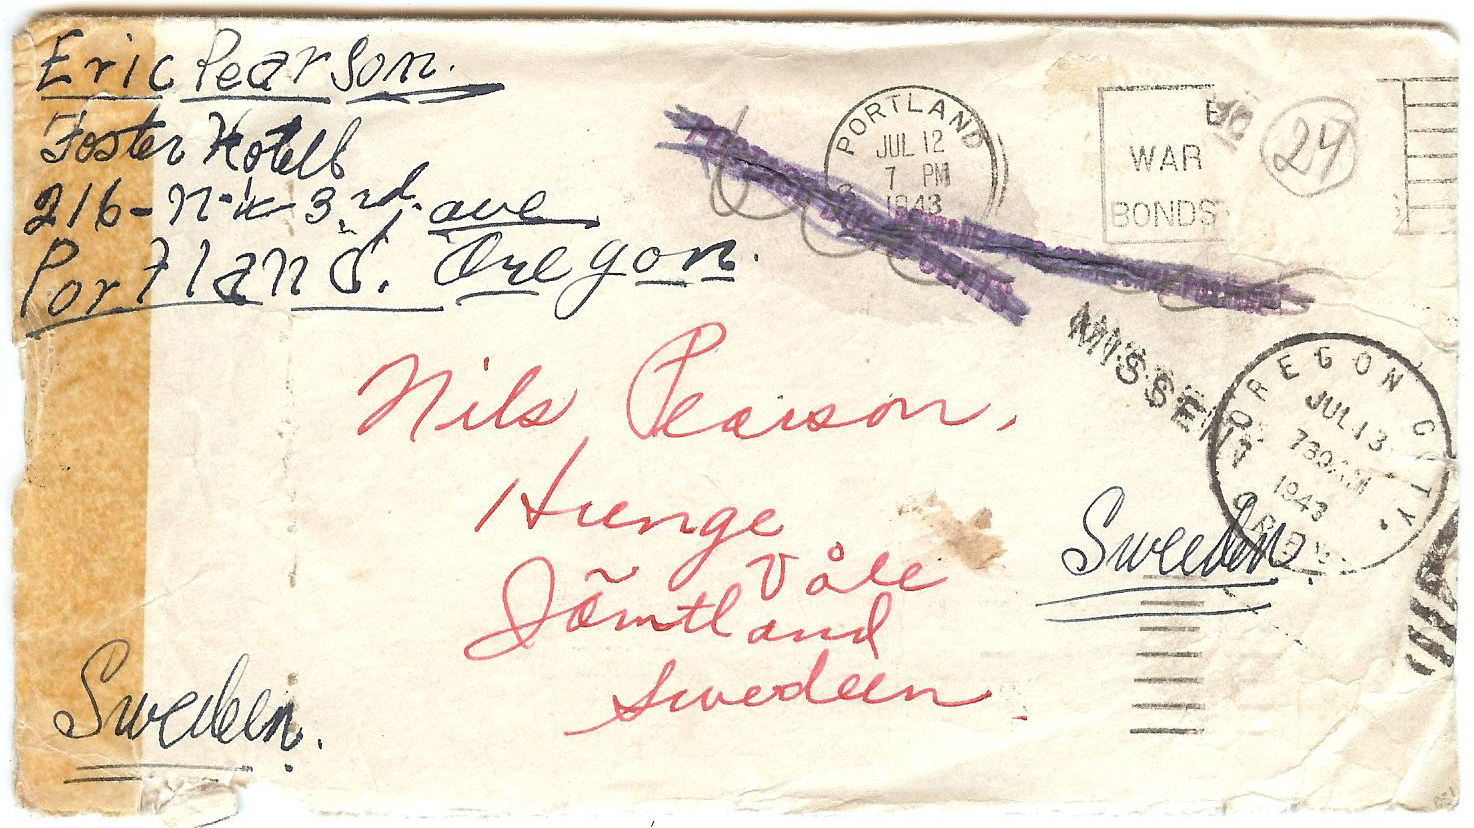 Eric Pearson.
Foster Hotell
216-N-W-3rd. ave
Portland. Oregon.
PORTLAND
JUL 12
7 PM
1943
WAR
BONDS
24
MISSENT
OREGON CITY.
JUL 13
730AM
1943
OREG.
Nils Pearson,
Hunge
Våle
Jämtland
Swedeen
Sweeden.
Swedeen.